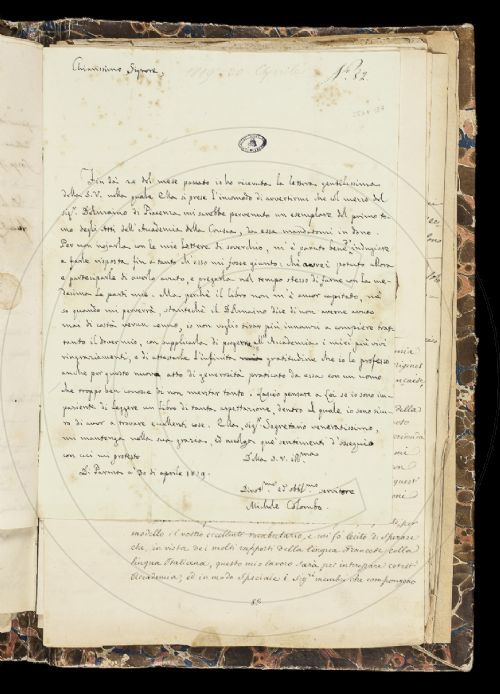 Chiarissimo Signore,
1819. 30 Aprile
N.º 82.
Fin dai 20 del mese passato io ho ricevuta la lettera gentilissima
della S.V. nella quale Ella si prese l'incomodo di avvertirmi che col mezzo del
sig.r Delmaino di Piacenza mi sarebbe pervenuto un esemplare del primo to-
mo degli Atti dell'Accademia della Crusca, da essa mandatomi in dono.
Per non nojarla con le mie lettere di soverchio, mi è paruto bene indugiare
a farle risposta fin a tanto ch'esso mi fosse giunto: chè avrei potuto allora
e parteciparle di averlo avuto, e pregarla nel tempo stesso di farne con la me-
desima le parti mie. Ma perchè il libro non m'è ancor capitato, nè
so quando mi perverrà, stantechè il Delmaino dice di non averne avuto
mai di costà verun cenno, io non voglio tirar più innanzi a compiere trat-
tanto il dover mio, con supplicarla di porgere all'Accademia i miei più vivi
ringraziamenti, e di attestarle l'infinita gratitudine che io le professo
anche per questo nuovo atto di generosità praticato da essa con un uomo
che troppo ben conosce di non meritar tanto. Lascio pensare a Lei se io sono im-
paziente di leggere un libro di tanta aspettazione, dentro al quale io sono sicu-
ro di aver a trovare eccellenti cose. Ella, sig.r Segretario veneratissimo,
mi mantenga nella sua grazia, ed accolga que' sentimenti d'ossequio
con cui mi protesto
Della S.V. Ill.ma
Di Parma a' 30 di aprile 1819.
Divot.mo ed obbl.mo servitore
Michele Colombo.
modello il vostro eccellente vocabolario, e mi fo lecito di sperare
che, in vista dei molti rapporti della lingua Francese colla
lingua Italiana, questo mio lavoro sarà per
Accademia, ed in modo speciale i Sig.ri membri che compongono
88